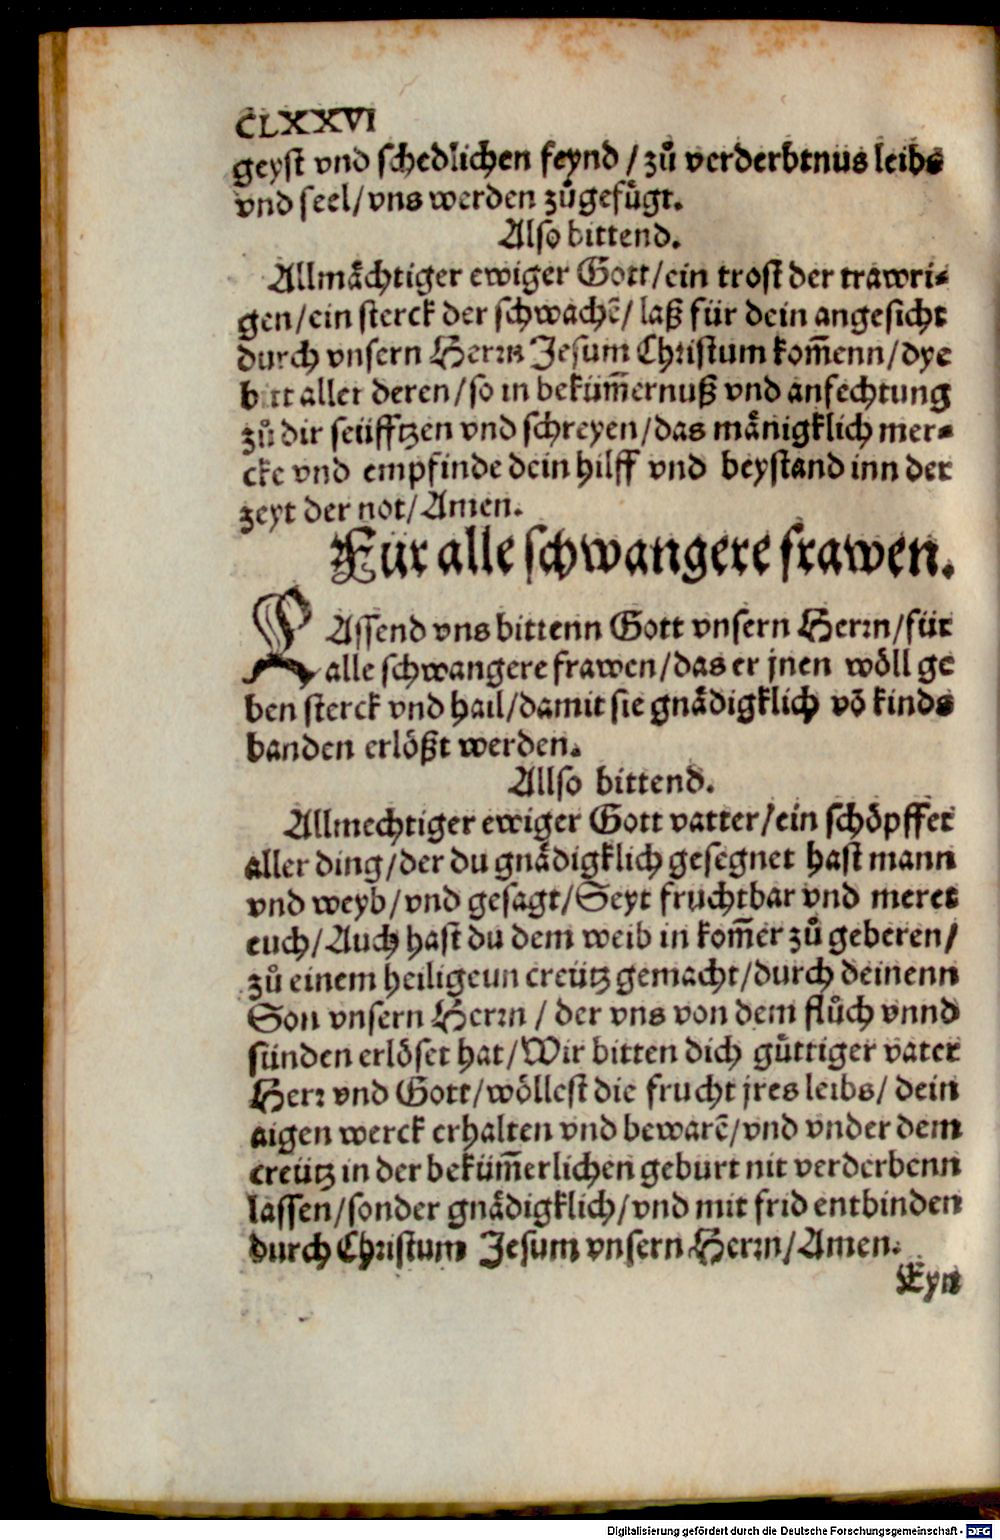 CLXXVI
geyst vnd schedlichen feynd / zů verderbtnus leibs
vnd seel/vns werden zůgefůgt.
Also bittend.
Allmächtiger ewiger Gott/ein trost der trawri-
gen/ein sterck der schwachẽ/ laß für dein angesicht
durch vnsern Herrn Jesum Christum kom̃enn/dye
bitt aller deren/so in beküm̃ernuß vnd anfechtung
zů dir seüfftzen vnd schreyen/das mänigklich mer-
cke vnd empfinde dein hilff vnd beystand inn der
zeyt der not/Amen.
Für alle schwangere frawen.
LAssend vns bittenn Gott vnsern Herrn/für
alle schwangere frawen/das er jnen wöll ge
ben sterck vnd hail/damit sie gnädigklich võ kinds
banden erlößt werden.
Allso bittend.
Allmechtiger ewiger Gott vatter/ein schöpffer
aller ding/der du gnädigklich gesegnet hast mann
vnd weyb/vnd gesagt/Seyt fruchtbar vnd meret
euch/Auch hast du dem weib in kom̃er zů geberen/
zů einem heiligeun creütz gemacht/durch deinenn
Son vnsern Herrn / der vns von dem flůch vnnd
sünden erlöset hat/Wir bitten dich gůttiger vater
Herr vnd Gott/wöllest die frucht jres leibs/ dein
aigen werck erhalten vnd bewarẽ/vnd vnder dem
creütz in der beküm̃erlichen geburt nit verderbenn
lassen/sonder gnädigklich/vnd mit frid entbinden
durch Christum Jesum vnsern Herrn/Amen.
Eyn
Digitalisierung gefördert durch die Deutsche Forschungsgemeinschaft - DFG